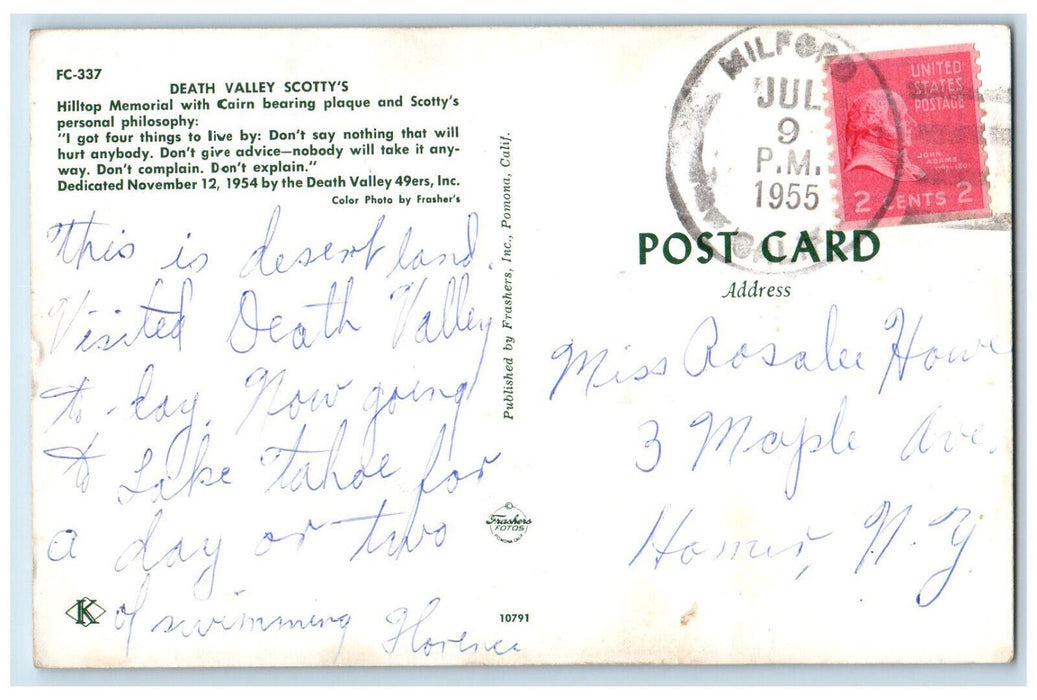 FC-337
DEATH VALLEY SCOTTY'S
Hilltop Memorial with Cairn bearing plaque and Scotty's
personal philosophy:
"I got four things to live by: Don't say nothing that will
hurt anybody. Don't give advice—nobody will take it any-
way. Don't complain. Don't explain."
Dedicated November 12, 1954 by the Death Valley 49ers, Inc.
Color Photo by Frasher's
This is desert land.
Visited Death Valley
to-day. Now going
to Lake Tahoe for
a day or two
of swimming Florence
K
Published by Frashers, Inc., Pomona, Calif.
Frashers
FOTOS
POMONA CALIF.
10791
MILFORD
JUL
9
P.M.
1955
CALIF.
UNITED
STATES
POSTAGE
JOHN
ADAMS
2 CENTS 2
POST CARD
Address
Miss Rosalee Howe
3 Maple Ave.
Homer, N.Y.